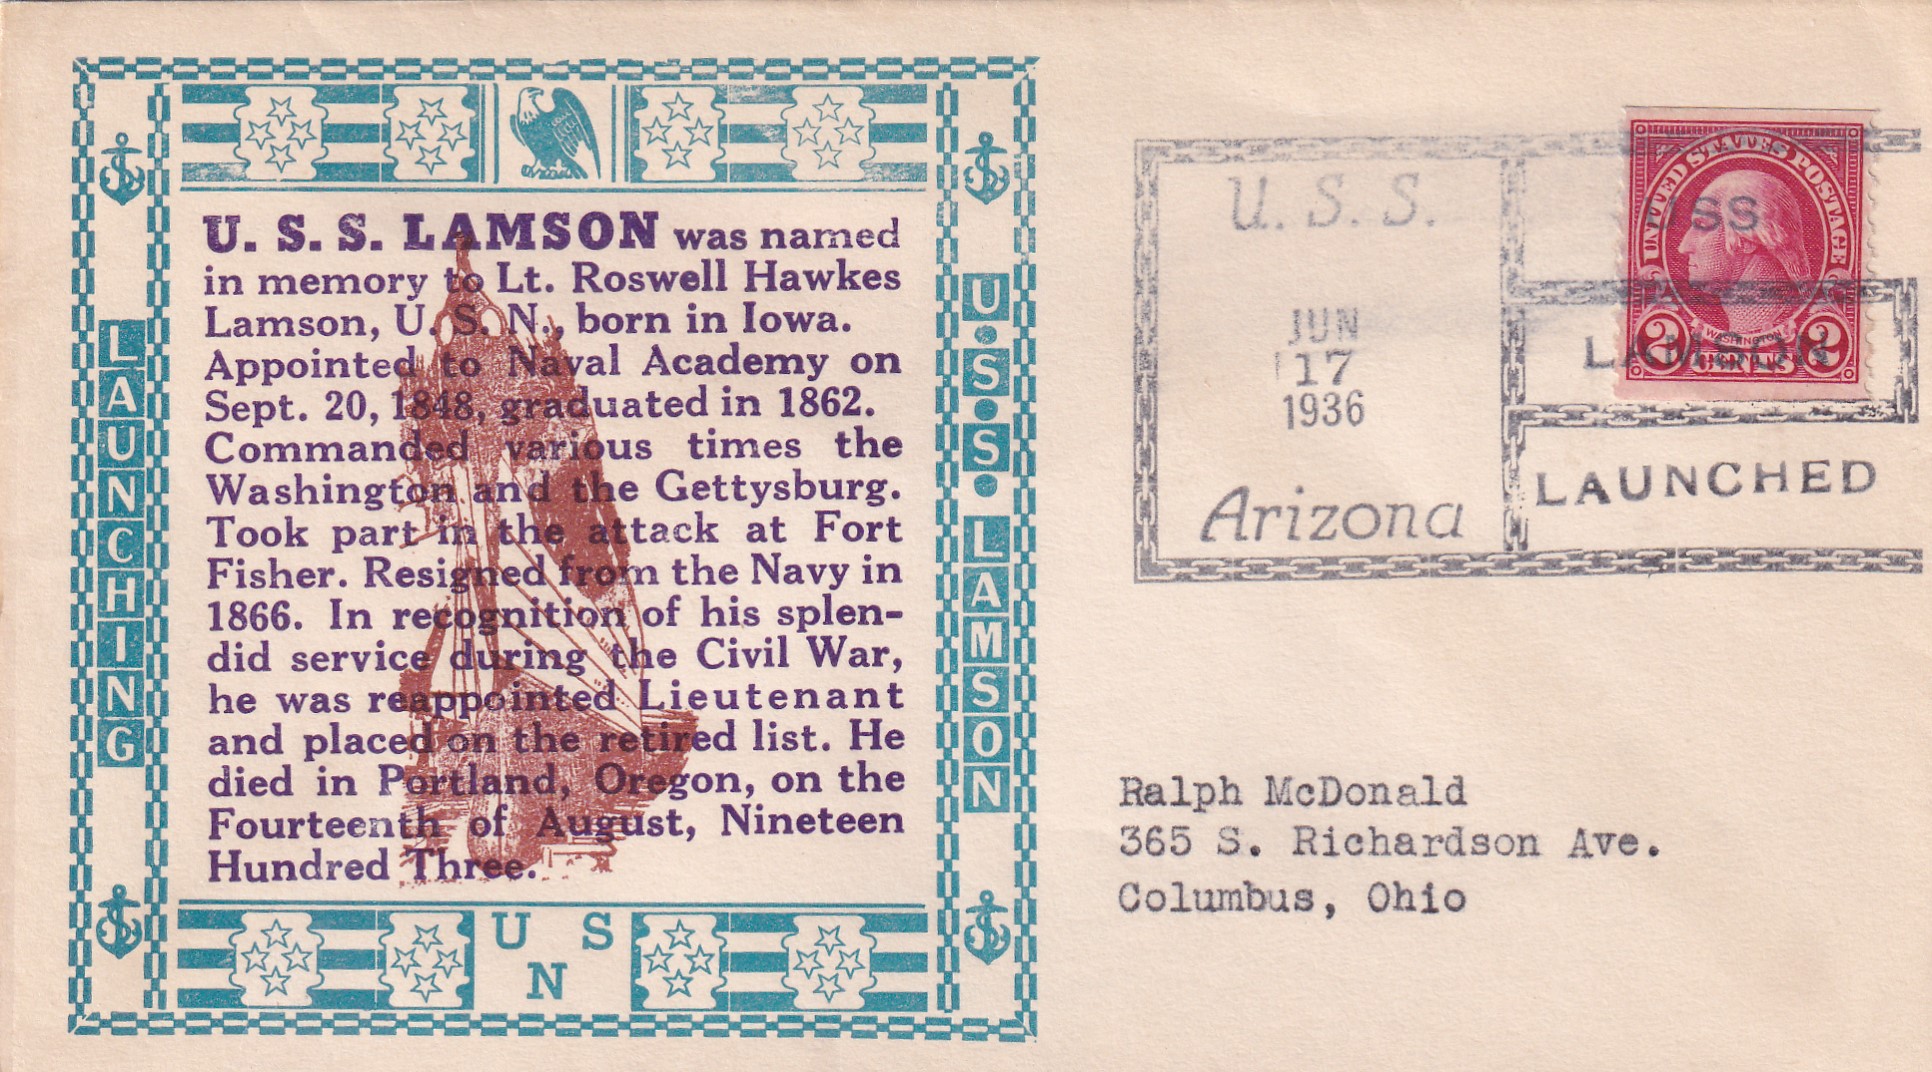 LAUNCHING
U. S. S. LAMSON was named
in memory to Lt. Roswell Hawkes
Lamson, U. S. N., born in Iowa.
Appointed to Naval Academy on
Sept. 20, 1848, graduated in 1862.
Commanded various times the
Washington and the Gettysburg.
Took part in the attack at Fort
Fisher. Resigned from the Navy in
1866. In recognition of his splen-
did service during the Civil War,
he was reappointed Lieutenant
and placed on the retired list. He
died in Portland, Oregon, on the
Fourteenth of August, Nineteen
Hundred Three.
U•S•S• LAMSON
U S
N
U. S. S.
JUN
17
1936
Arizona
USS
LAMSON
LAUNCHED
UNITED STATES POSTAGE
WASHINGTON
2 CENTS 2
Ralph McDonald
365 S. Richardson Ave.
Columbus, Ohio